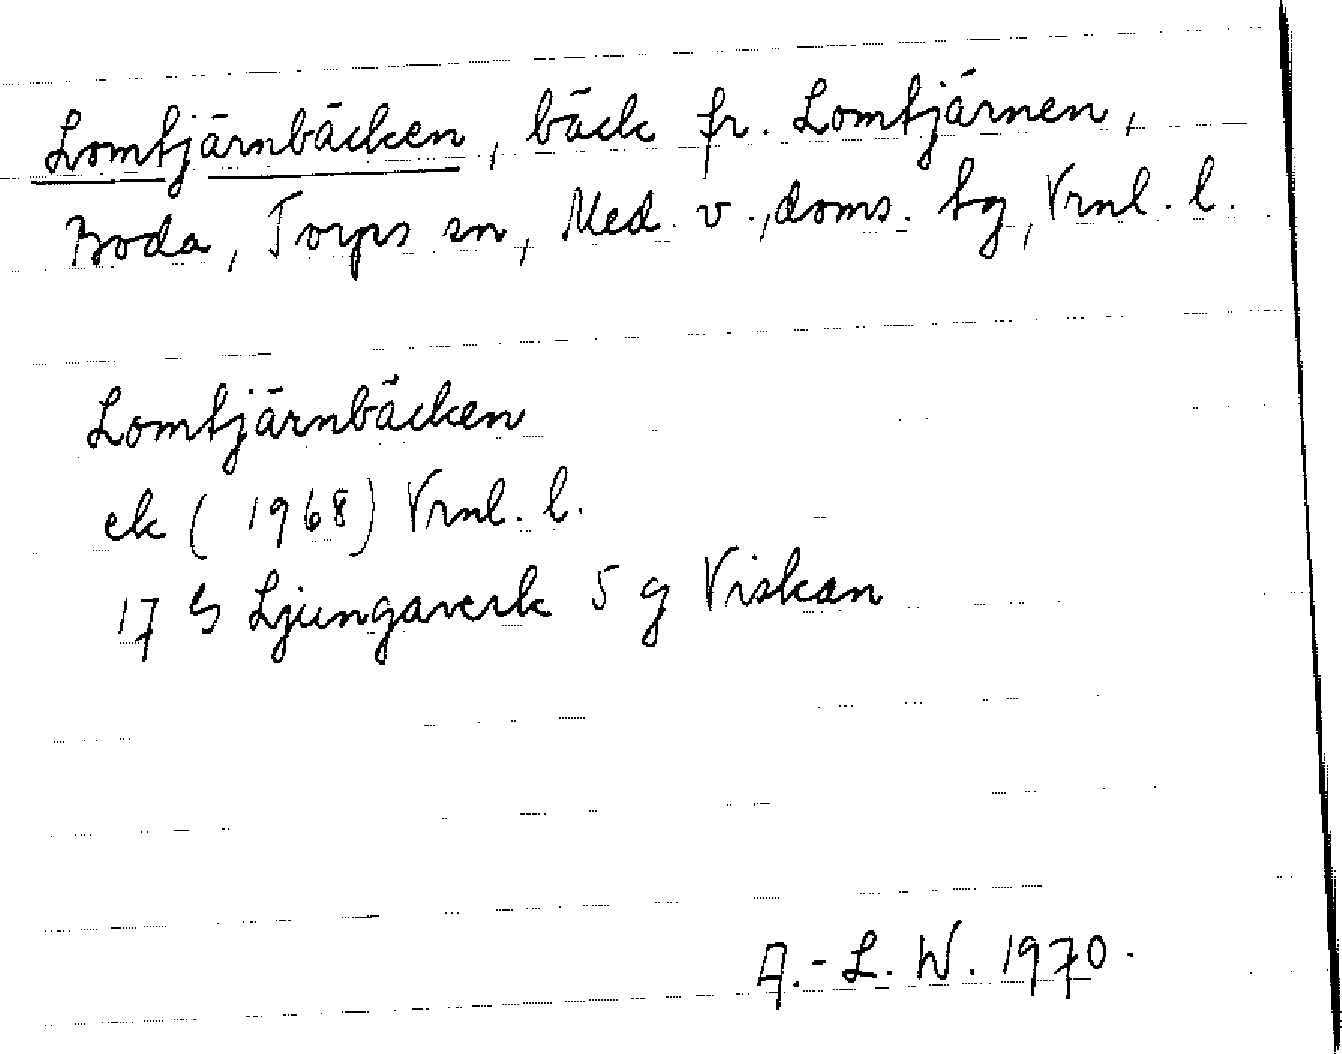 Lomtjärnbäcken, bäck fr. Lomtjärnen,
Boda, Torps sn, Med. v., doms. tg, Vrnl. l.
Lomtjärnbäcken
ek (1968) Vrnl. l.
17 G Ljungaverk 5 g Viskan
A.-L. W. 1970.